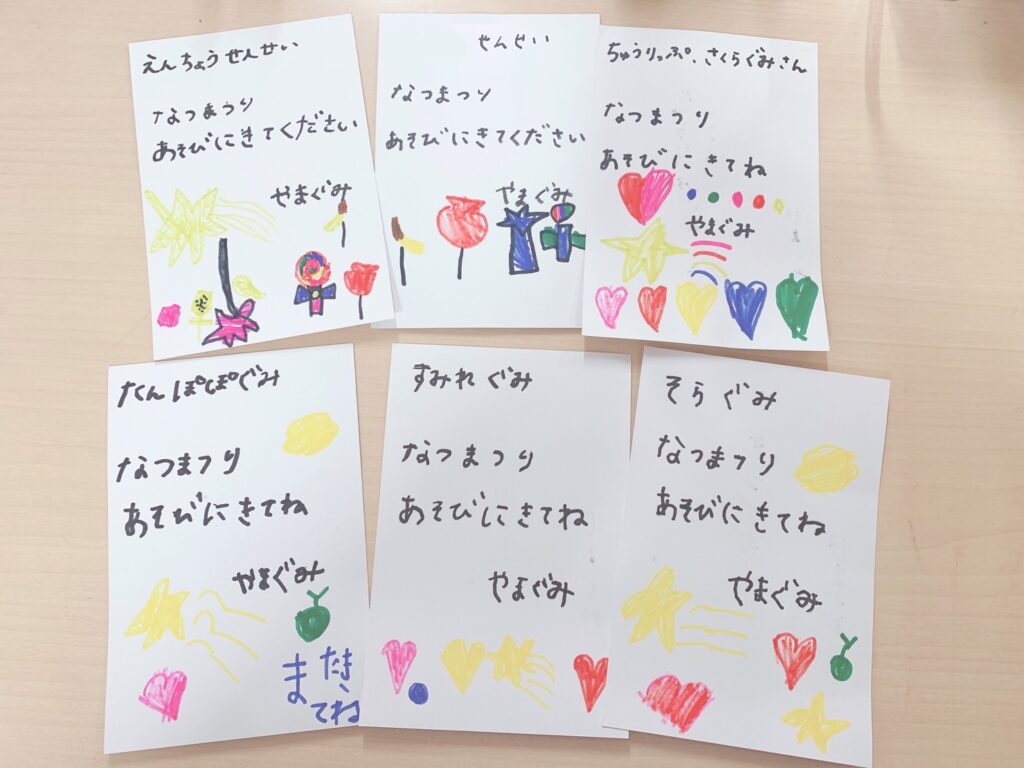 えんちょうせんせい
なつまつり
あそびにきてください
やまぐみ
せんせい
なつまつり
あそびにきてください
やまぐみ
ちゅうりっぷ、さくらぐみさん
なつまつり
あそびにきてね
やまぐみ
たんぽぽぐみ
なつまつり
あそびにきてね
やまぐみ
すみれぐみ
なつまつり
あそびにきてね
やまぐみ
そらぐみ
なつまつり
あそびにきてね
やまぐみ